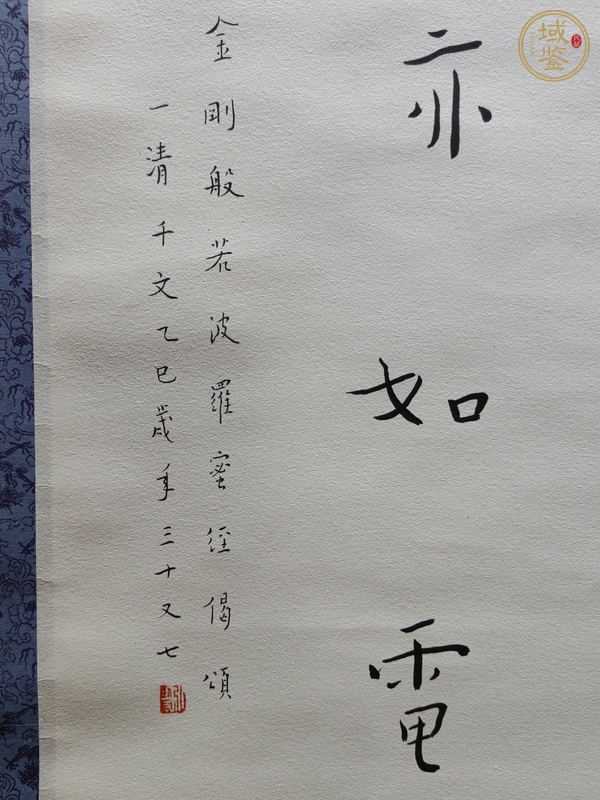 亦如電
金剛般若波羅蜜經偈頌
一清千文乙巳歲年三十又七
域鉴